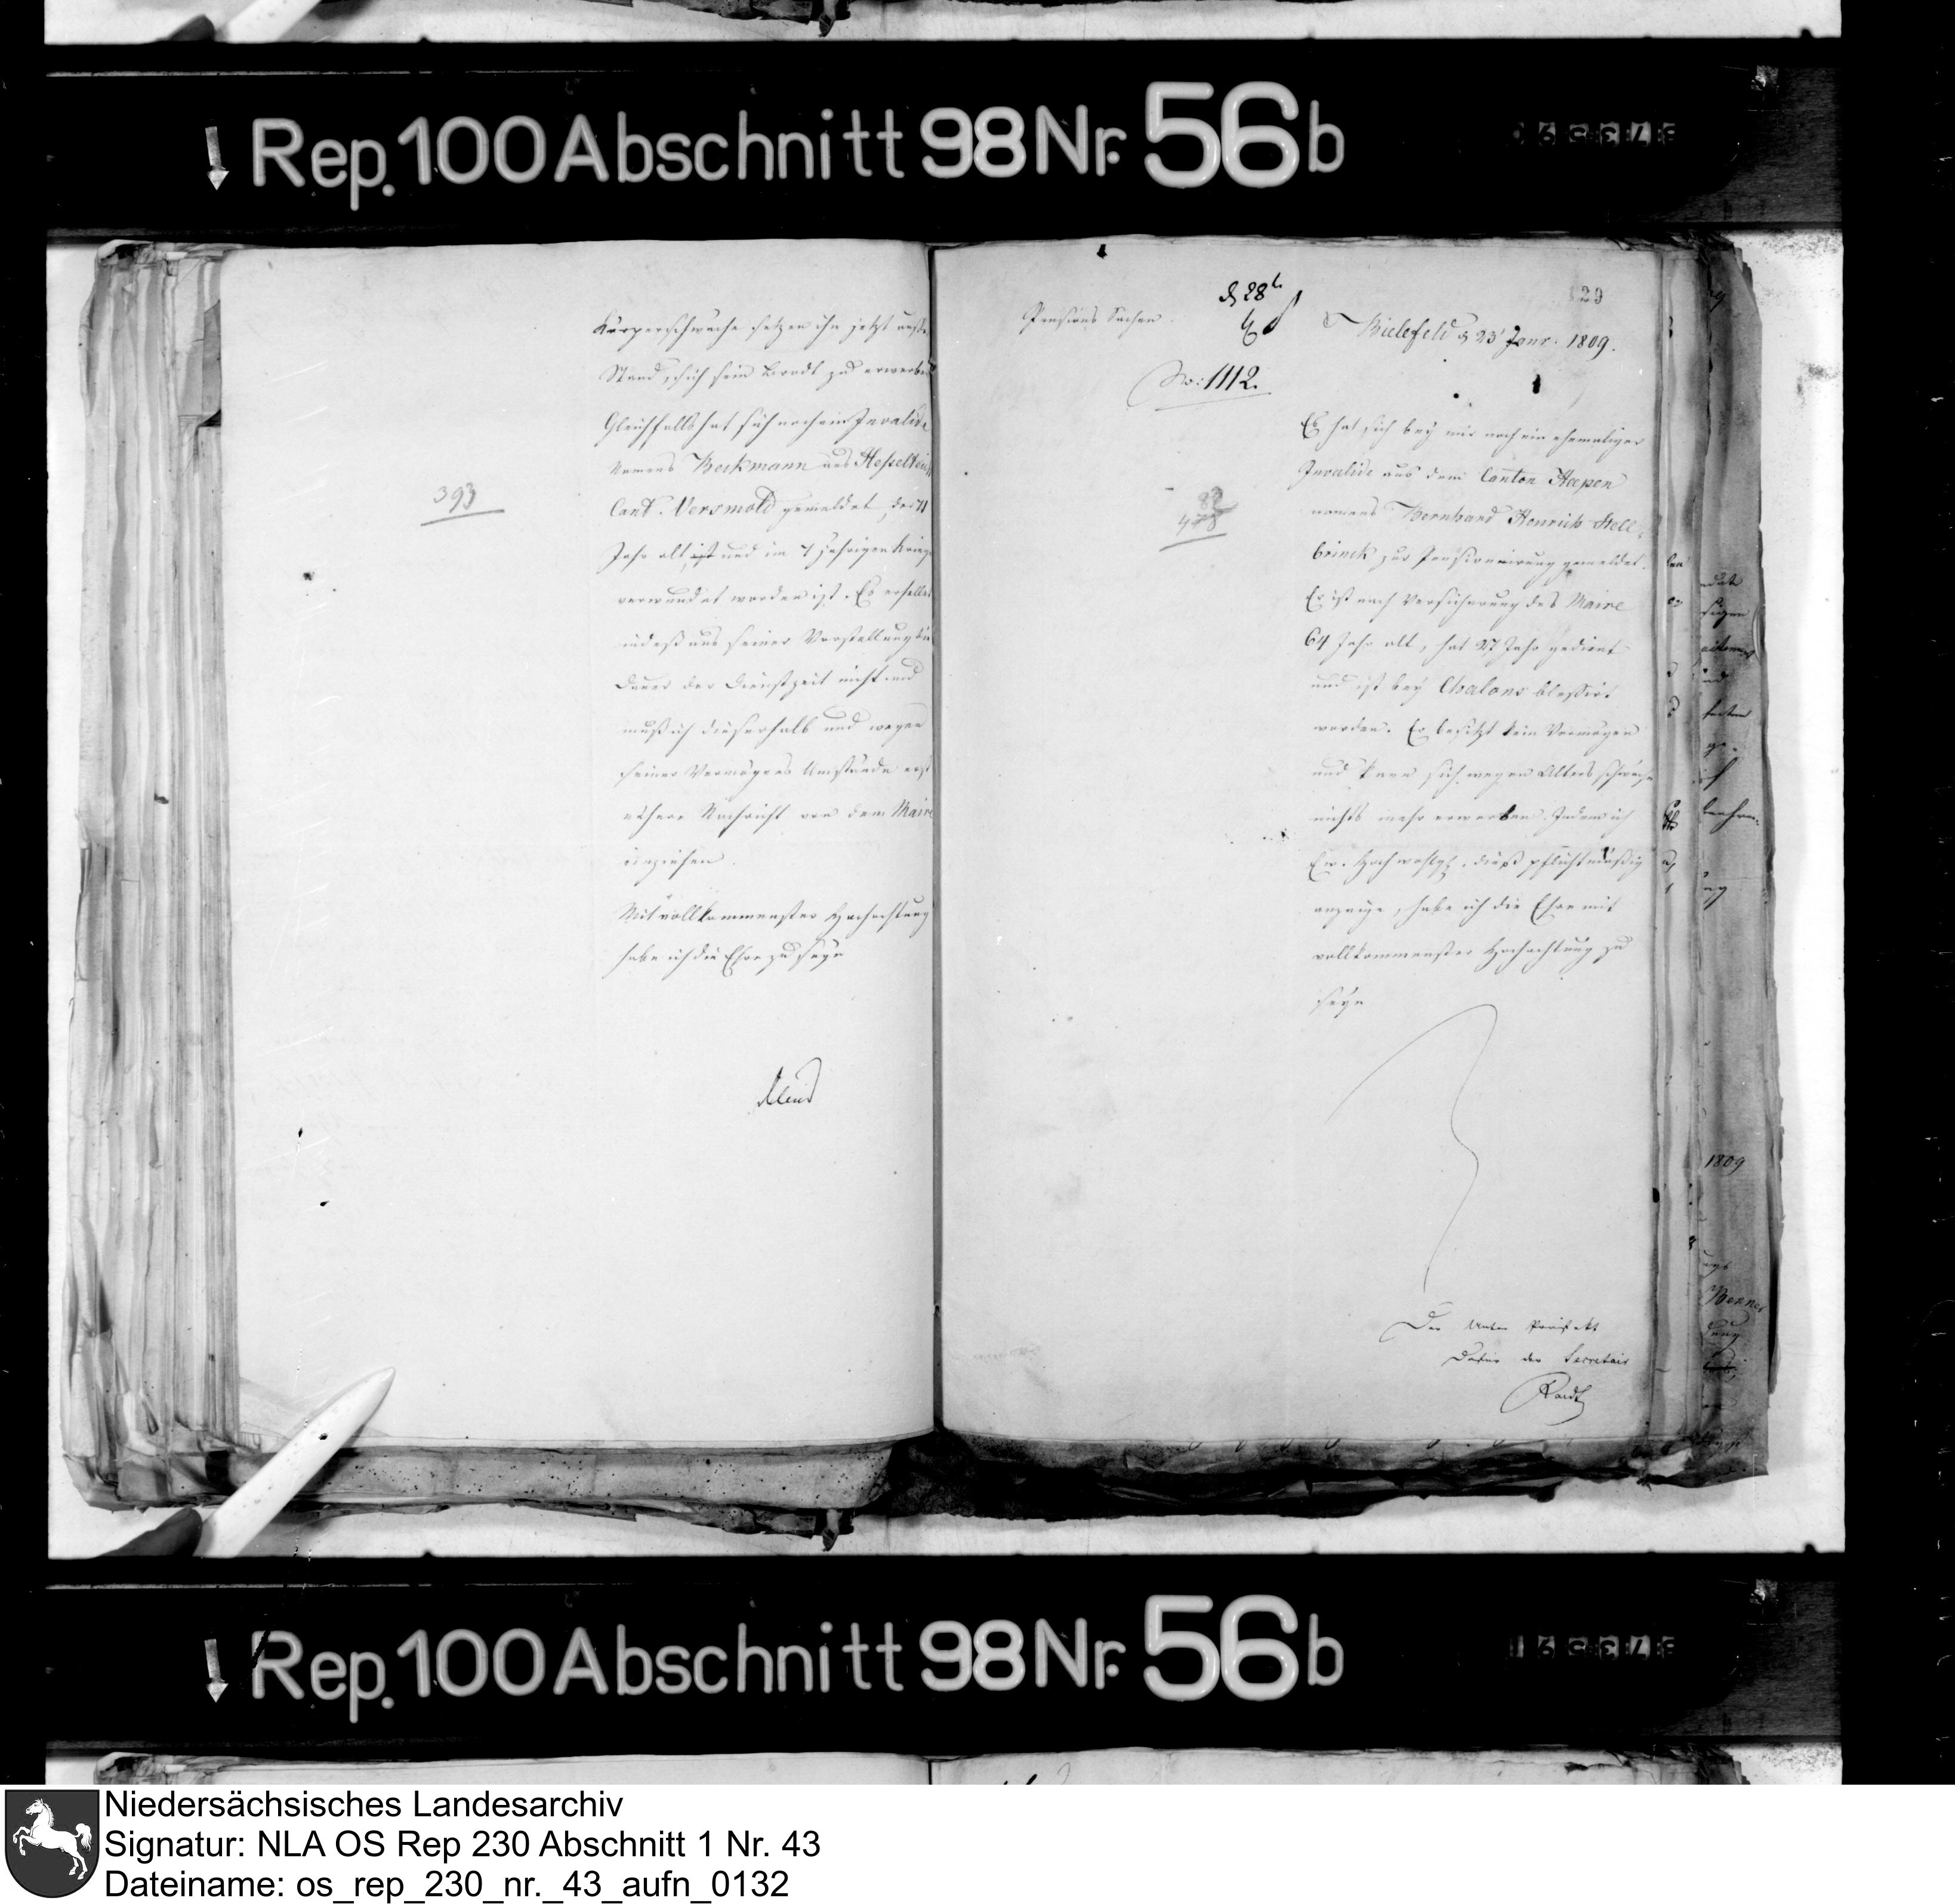 Rep. 100 Abschnitt 98 Nr. 56 b
Körperschwäche setzen ihn jetzt außer
Stand, sich sein Brodt zu erwerben
Gleichfalls hat sich noch ein Invalide
Namens Beckmann aus Hesselteich
Cant. Versmold gemeldet, der 71
393
Jahr alt ist und im 7 jährigen Kriege
verwundet worden ist. Es erhellet
indeß aus seiner Vorstellung die
Dauer der Dienstzeit nicht und
muß ich dieserhalb und wegen
seiner Vermögens Umstände erst
nähere Nachricht von dem Maire
einziehen.
Mit vollkommenster Hochachtung
habe ich die Ehre zu seyn
Pensions Sachen.
d 28t
No: 1112.
29
Bielefeld d 23 Janr. 1809.
Es hat sich bey mir noch ein ehemaliger
Invalide aus dem Canton Heepen
namens Bernhard Henrich Stell-
brinck zur Pensionierung gemeldet.
Er ist nach Versicherung des Maire
64 Jahr alt, hat 27 Jahr gedient
und ist bey Chalons blessirt
worden. Er besitzt kein Vermögen
und kann sich wegen Altersschwäche
nichts mehr erwerben. Indem ich
Ew. Hochwohlgb. dieß pflichtmäßig
anzeige, habe ich die Ehre mit
vollkommenster Hochachtung zu
seyn
Der Unter Präfekt
Dafür der Secretair
1809
Rep. 100 Abschnitt 98 Nr. 56 b
Niedersächsisches Landesarchiv
Signatur: NLA OS Rep 230 Abschnitt 1 Nr. 43
Dateiname: os_rep_230_nr._43_aufn_0132